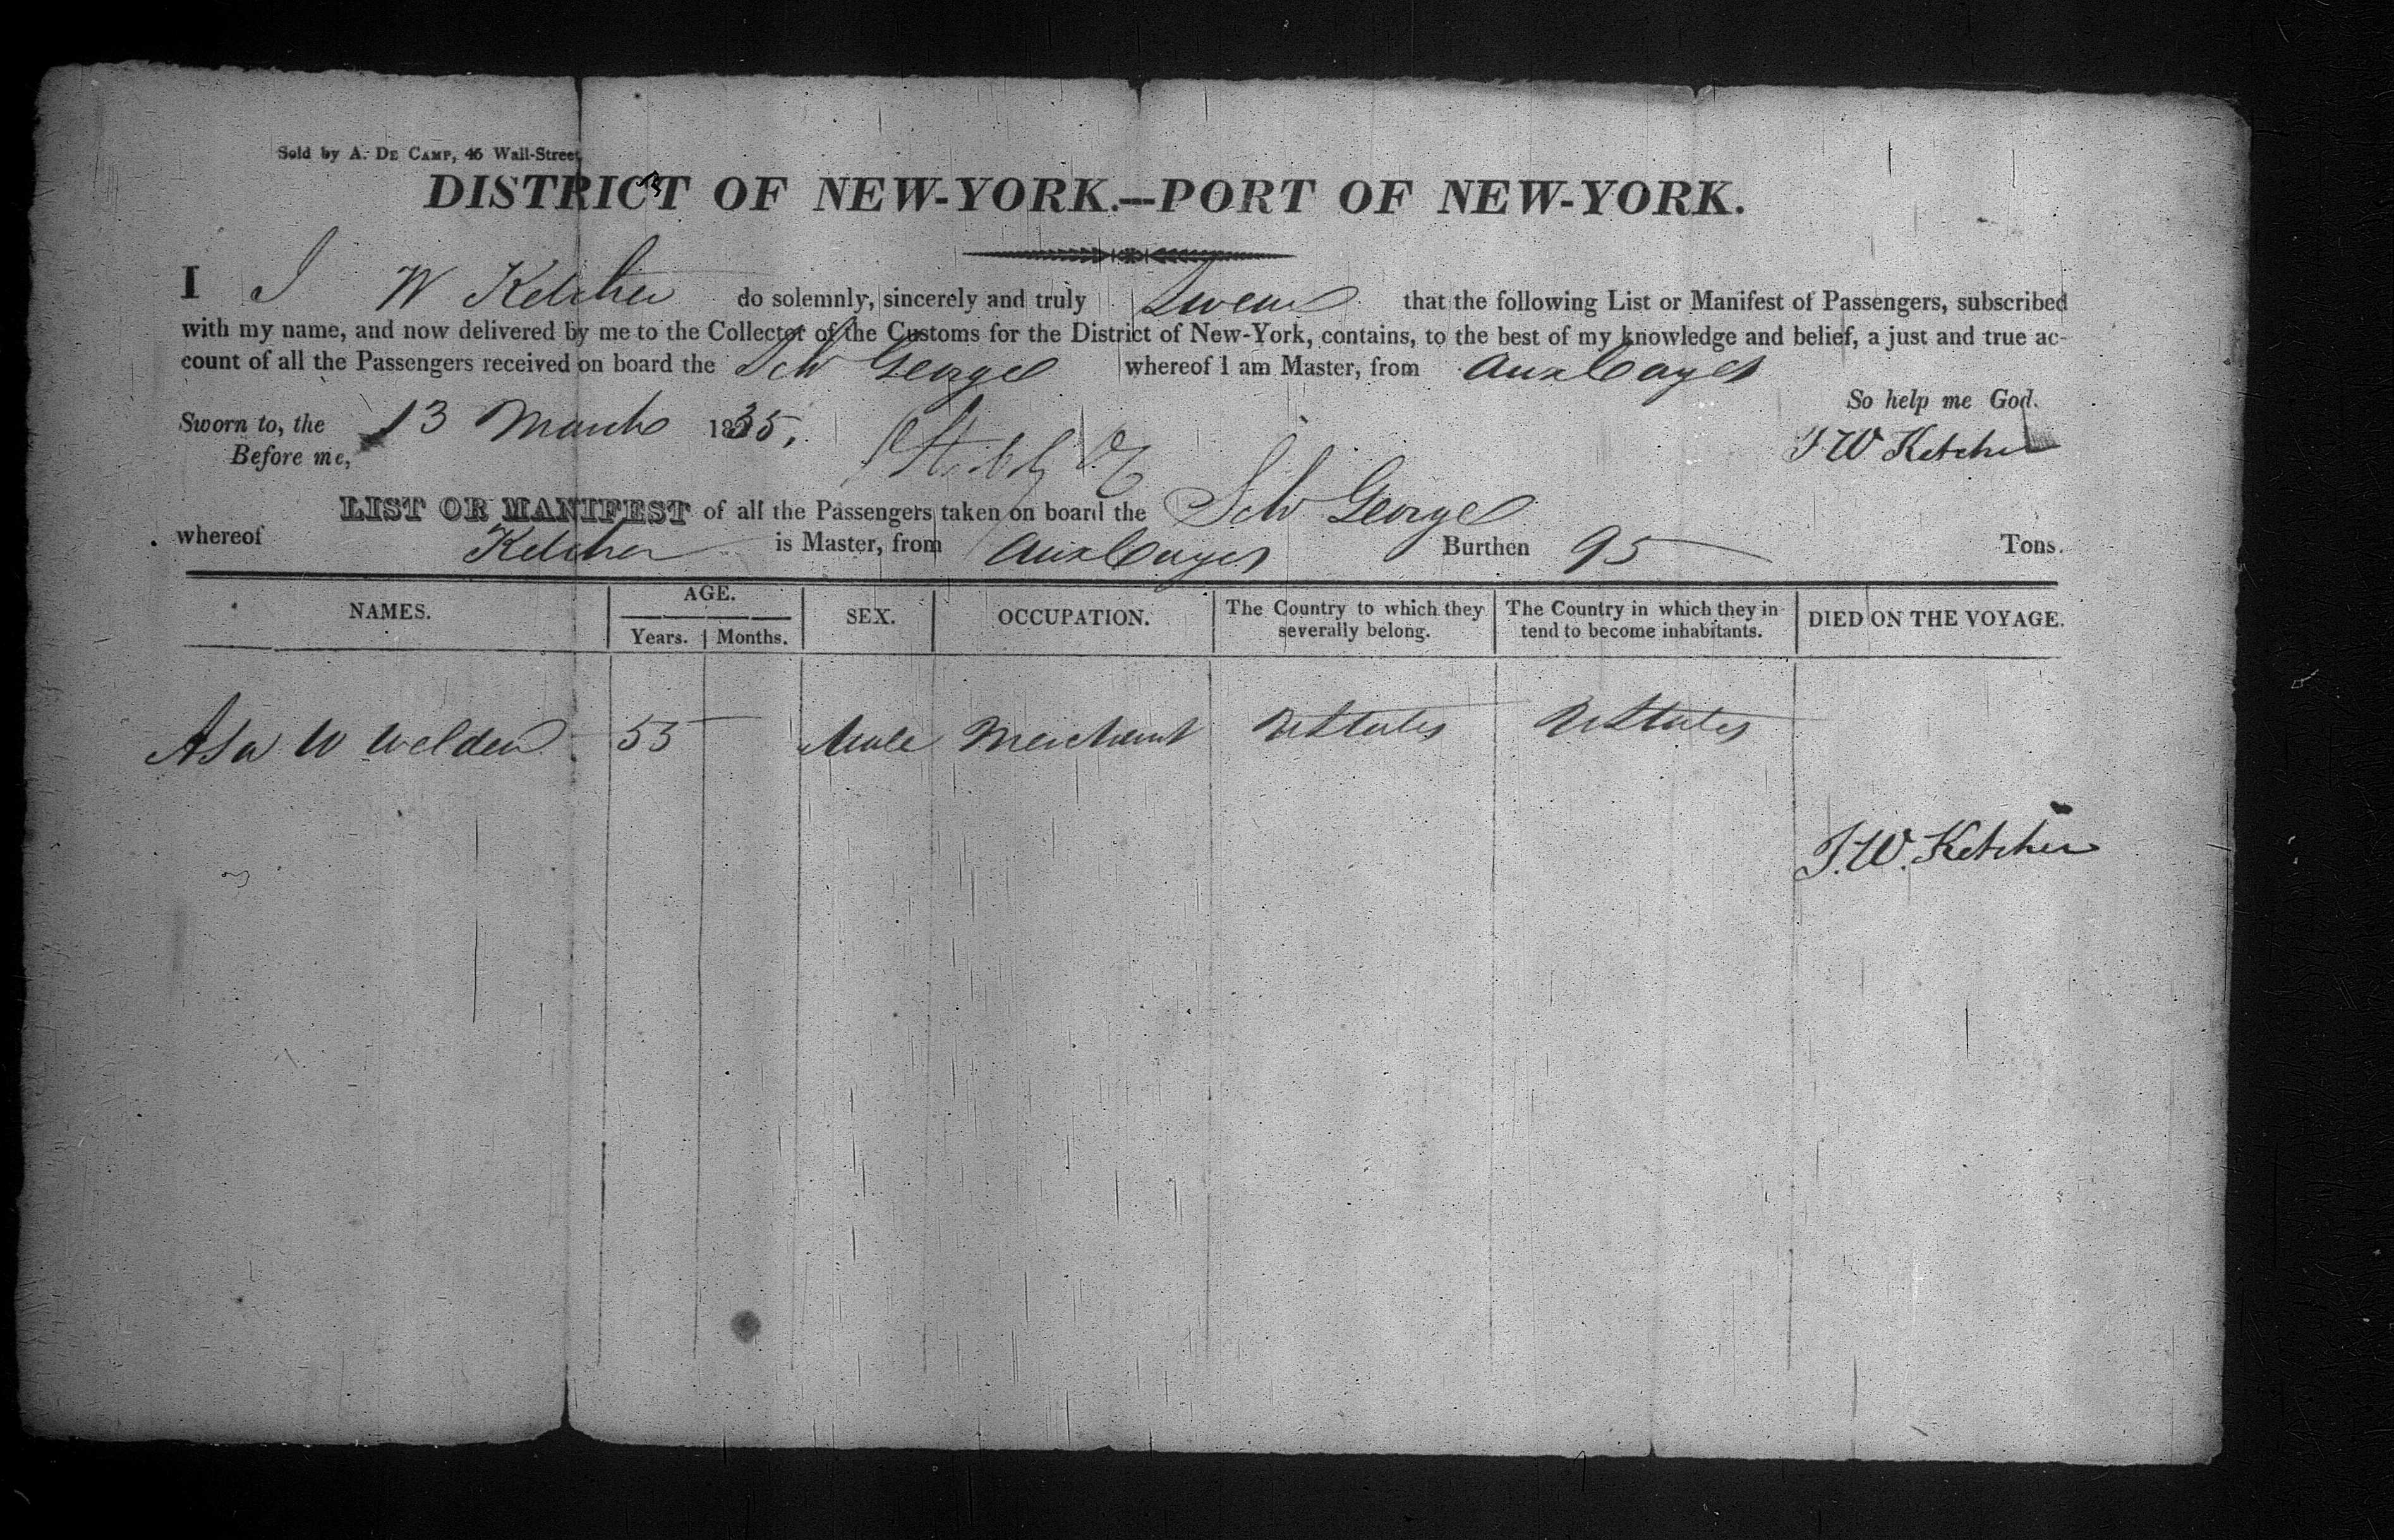 Sold by A. DE CAMP, 46 Wall-Street
DISTRICT OF NEW-YORK.—PORT OF NEW-YORK.
I J W Ketcher do solemnly, sincerely and truly Swear that the following List or Manifest of Passengers, subscribed
with my name, and now delivered by me to the Collector of the Customs for the District of New-York, contains, to the best of my knowledge and belief, a just and true ac-
count of all the Passengers received on board the Sch George whereof I am Master, from Aux Cayes
So help me God.
Sworn to, the 13 March 1835,
Before me,
J W Ketcher
LIST OR MANIFEST of all the Passengers taken on board the Sch George
whereof Ketcher is Master, from Aux Cayes Burthen 95 Tons.
NAMES. AGE. SEX. OCCUPATION. The Country to which they severally belong. The Country in which they in tend to become inhabitants. DIED ON THE VOYAGE.
Years. Months.
Asa W Welden 55 Male Merchant U States U States
J. W. Ketcher